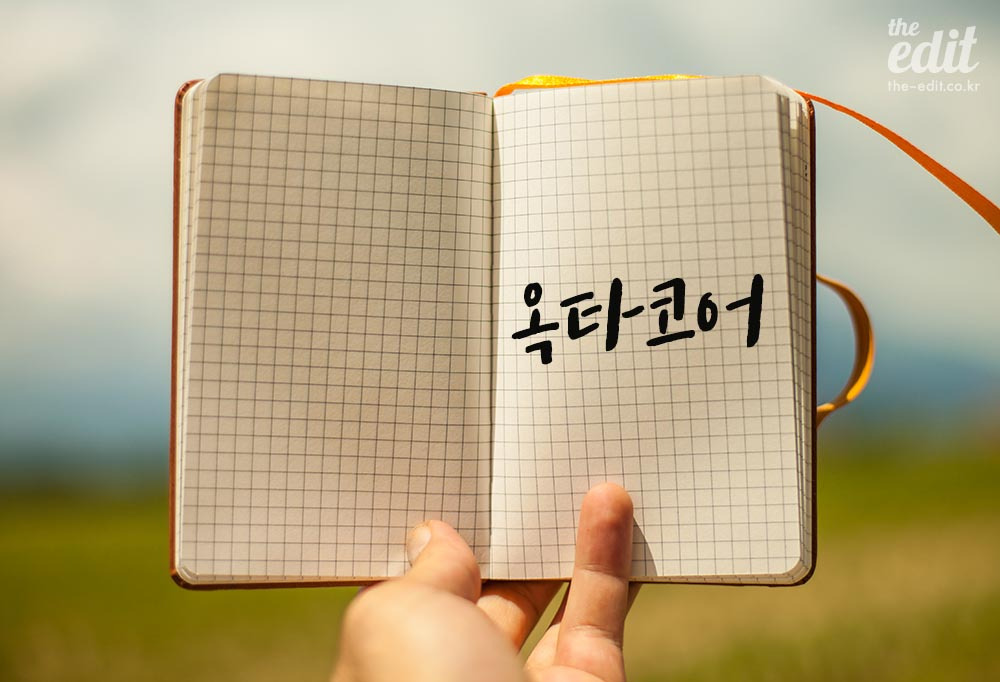 the
edit
the-edit.co.kr
옥타코어